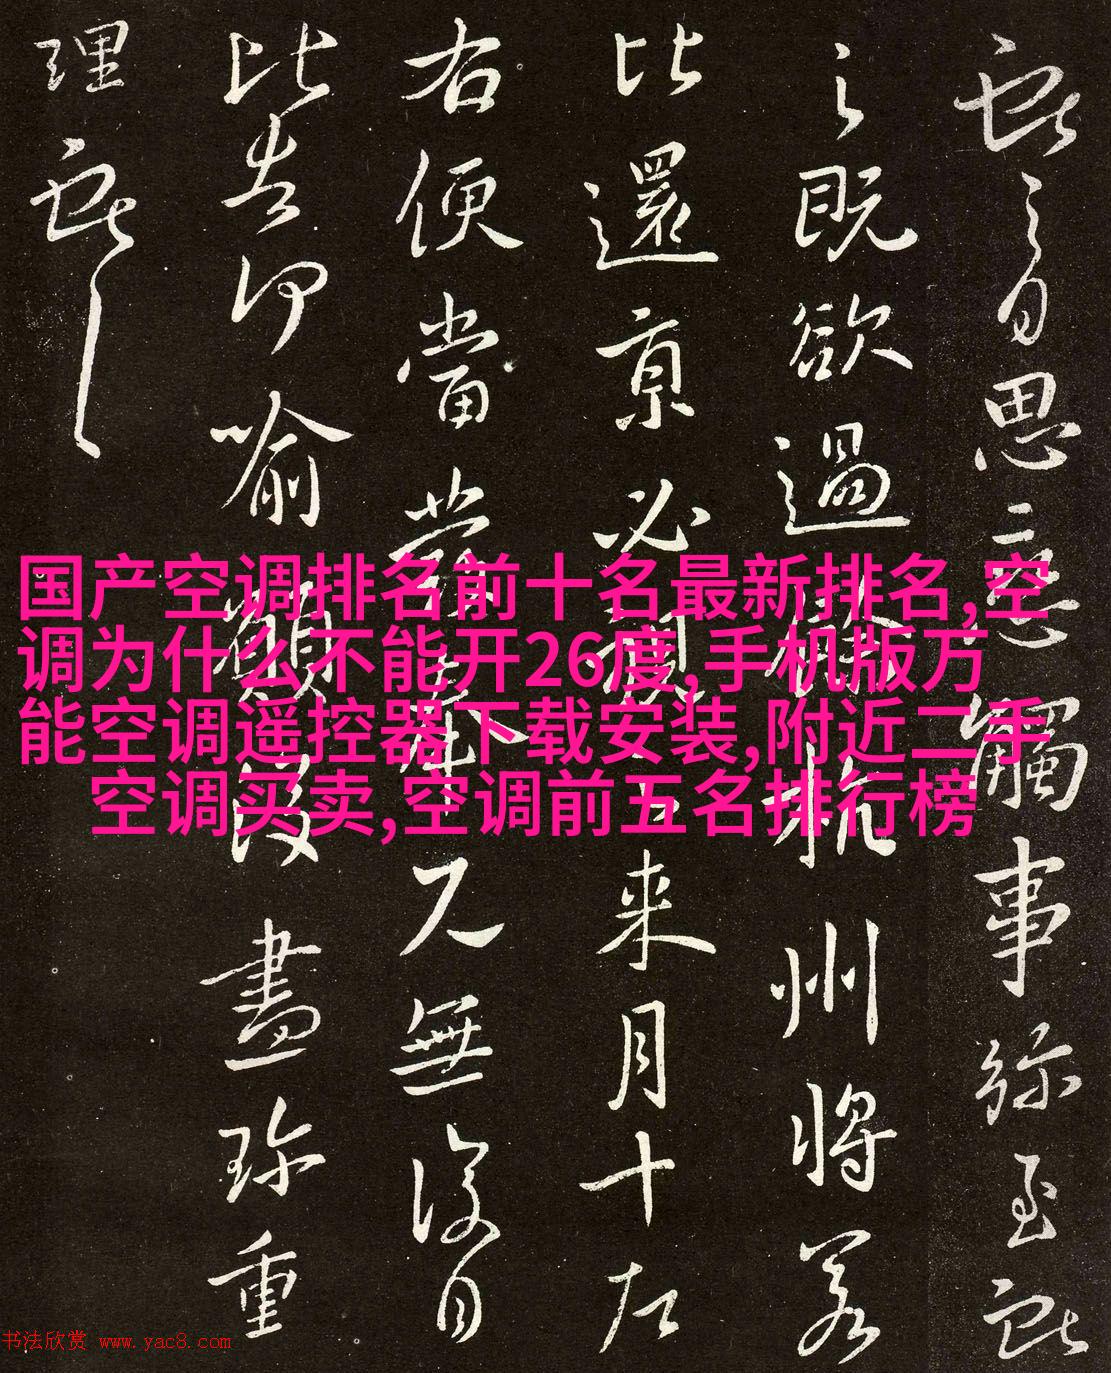 思意觸事弥至
之既欲過杭州將若
比還京必來月十左
右便當無復日
喻願盡珍重
理
国产空调排名前十名最新排名,空
调为什么不能开26度,手机版万
能空调遥控器下载安装,附近二手
空调买卖,空调前五名排行榜
书法欣赏 www.yac8.com